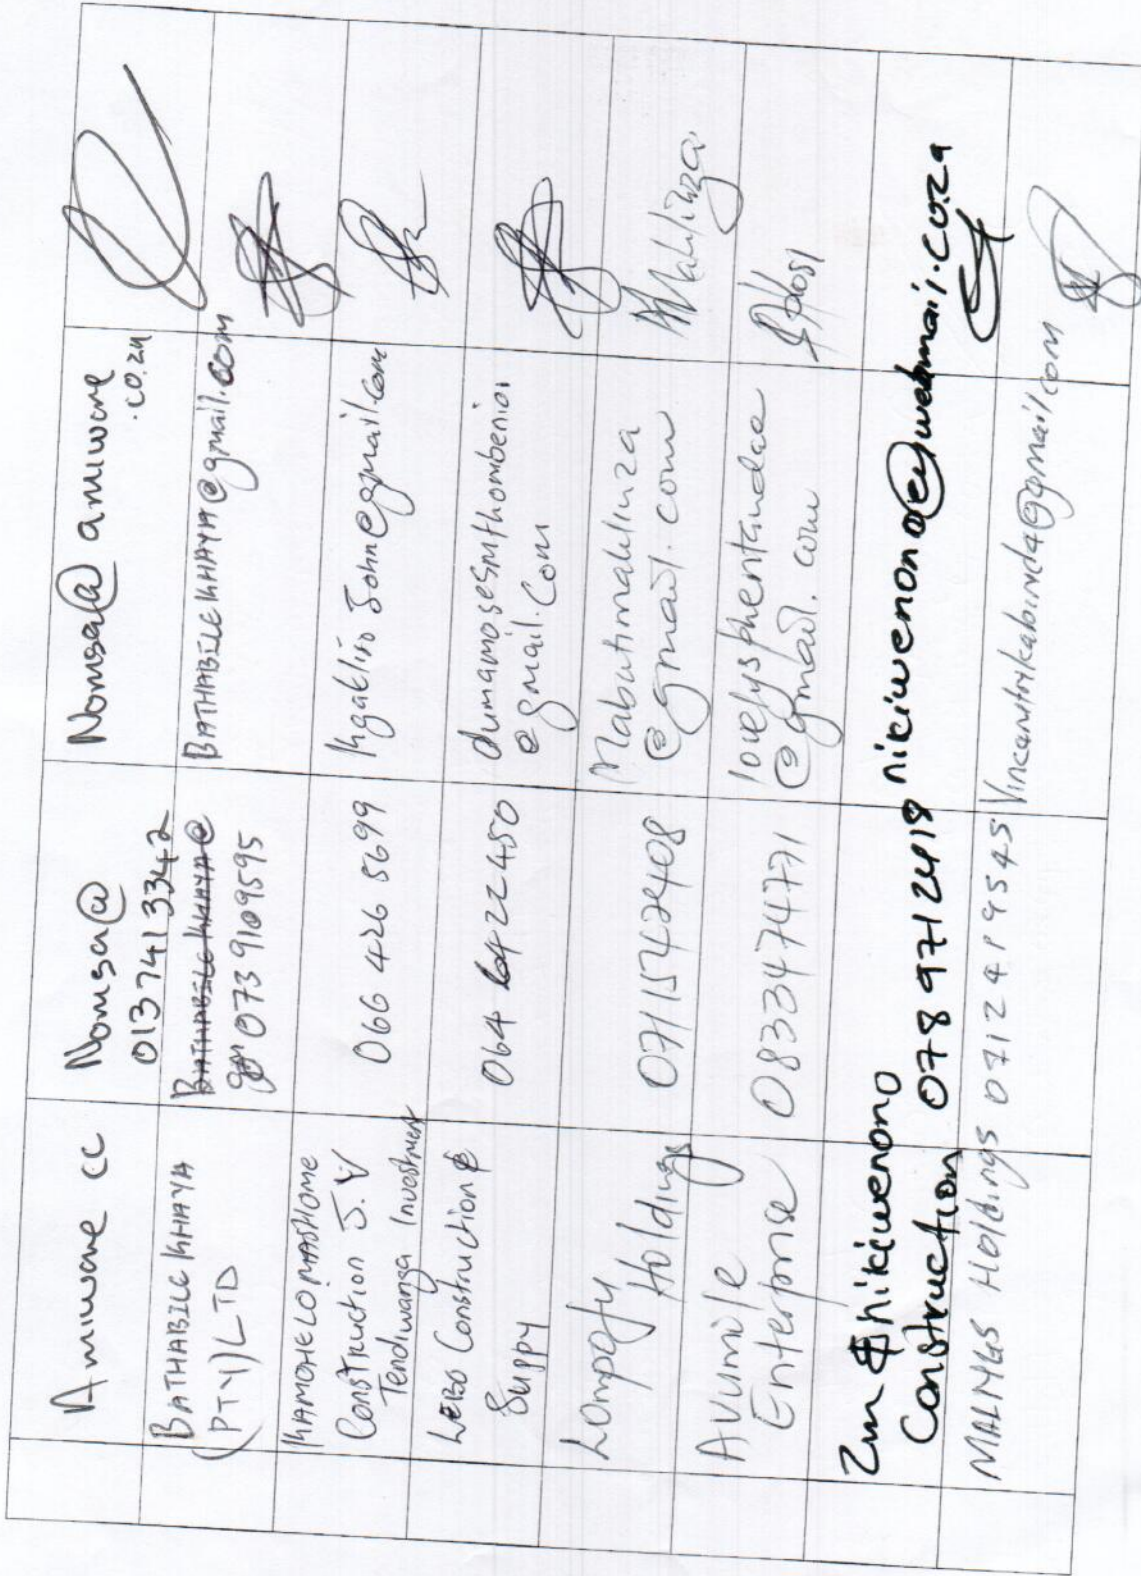 Amiwone cc
Nomsa@
013 741 3342
Nomsa@ amiwone
.co.za
BATHABILE KHAYA
(PTY) LTD
BATHABILE KHAYA@
073 9109595
BATHABILEKHAYA@gmail.com
KAMOHELO MASHOME
Construction J.V
Tendiwanga Investment
066 426 5699
Kgaliso John@gmail.com
LEBO Construction &
Suppy
064 6422450
dumamosesmthombeni01
@gmail.com
Lompofu
Holdings
0711542408
Mabutimahlinza
@gmail.com
Mahlinza
Avumile
Enterprise
0833474771
lovelysphentandae
@gmail.com
Zm Shiciweno
Construction
078 9712418
niciwenono@webmail.co.za
MALMGS Holdings
0712419545
Vincentnykabinda@gmail.com